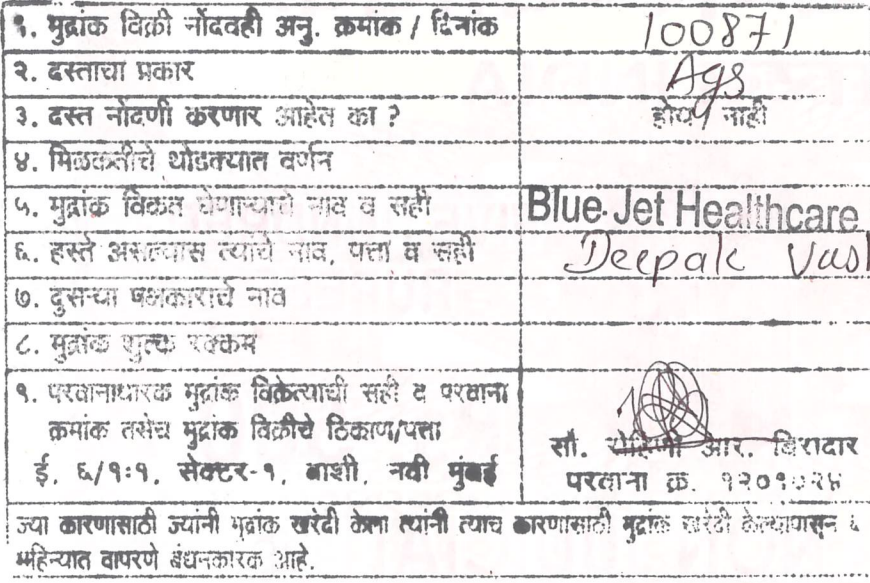 १. मुद्रांक विक्री नोंदवही अनु. क्रमांक / दिनांक 100871
२. दस्ताचा प्रकार Ags
३. दस्त नोंदणी करणार आहेत का ? होय / नाही
४. मिळकतीचे थोडक्यात वर्णन
५. मुद्रांक विकत घेणाऱ्याचे नाव व सही Blue Jet Healthcare
६. हस्ते असल्यास त्यांचे नाव, पत्ता व सही Deepak
७. दुसऱ्या पक्षकाराचे नाव
८. मुद्रांक शुल्क रक्कम
९. परवानाधारक मुद्रांक विक्रेत्याची सही व परवाना
क्रमांक तसेच मुद्रांक विक्रीचे ठिकाण/पत्ता
ई. ६/१:१, सेक्टर-१, वाशी, नवी मुंबई
सौ. आर. बिरादार
परवाना क्र. १२०१०२४
ज्या कारणासाठी ज्यांनी मुद्रांक खरेदी केला त्यांनी त्याच कारणासाठी मुद्रांक खरेदी केल्यापासून ६
महिन्यात वापरणे बंधनकारक आहे.